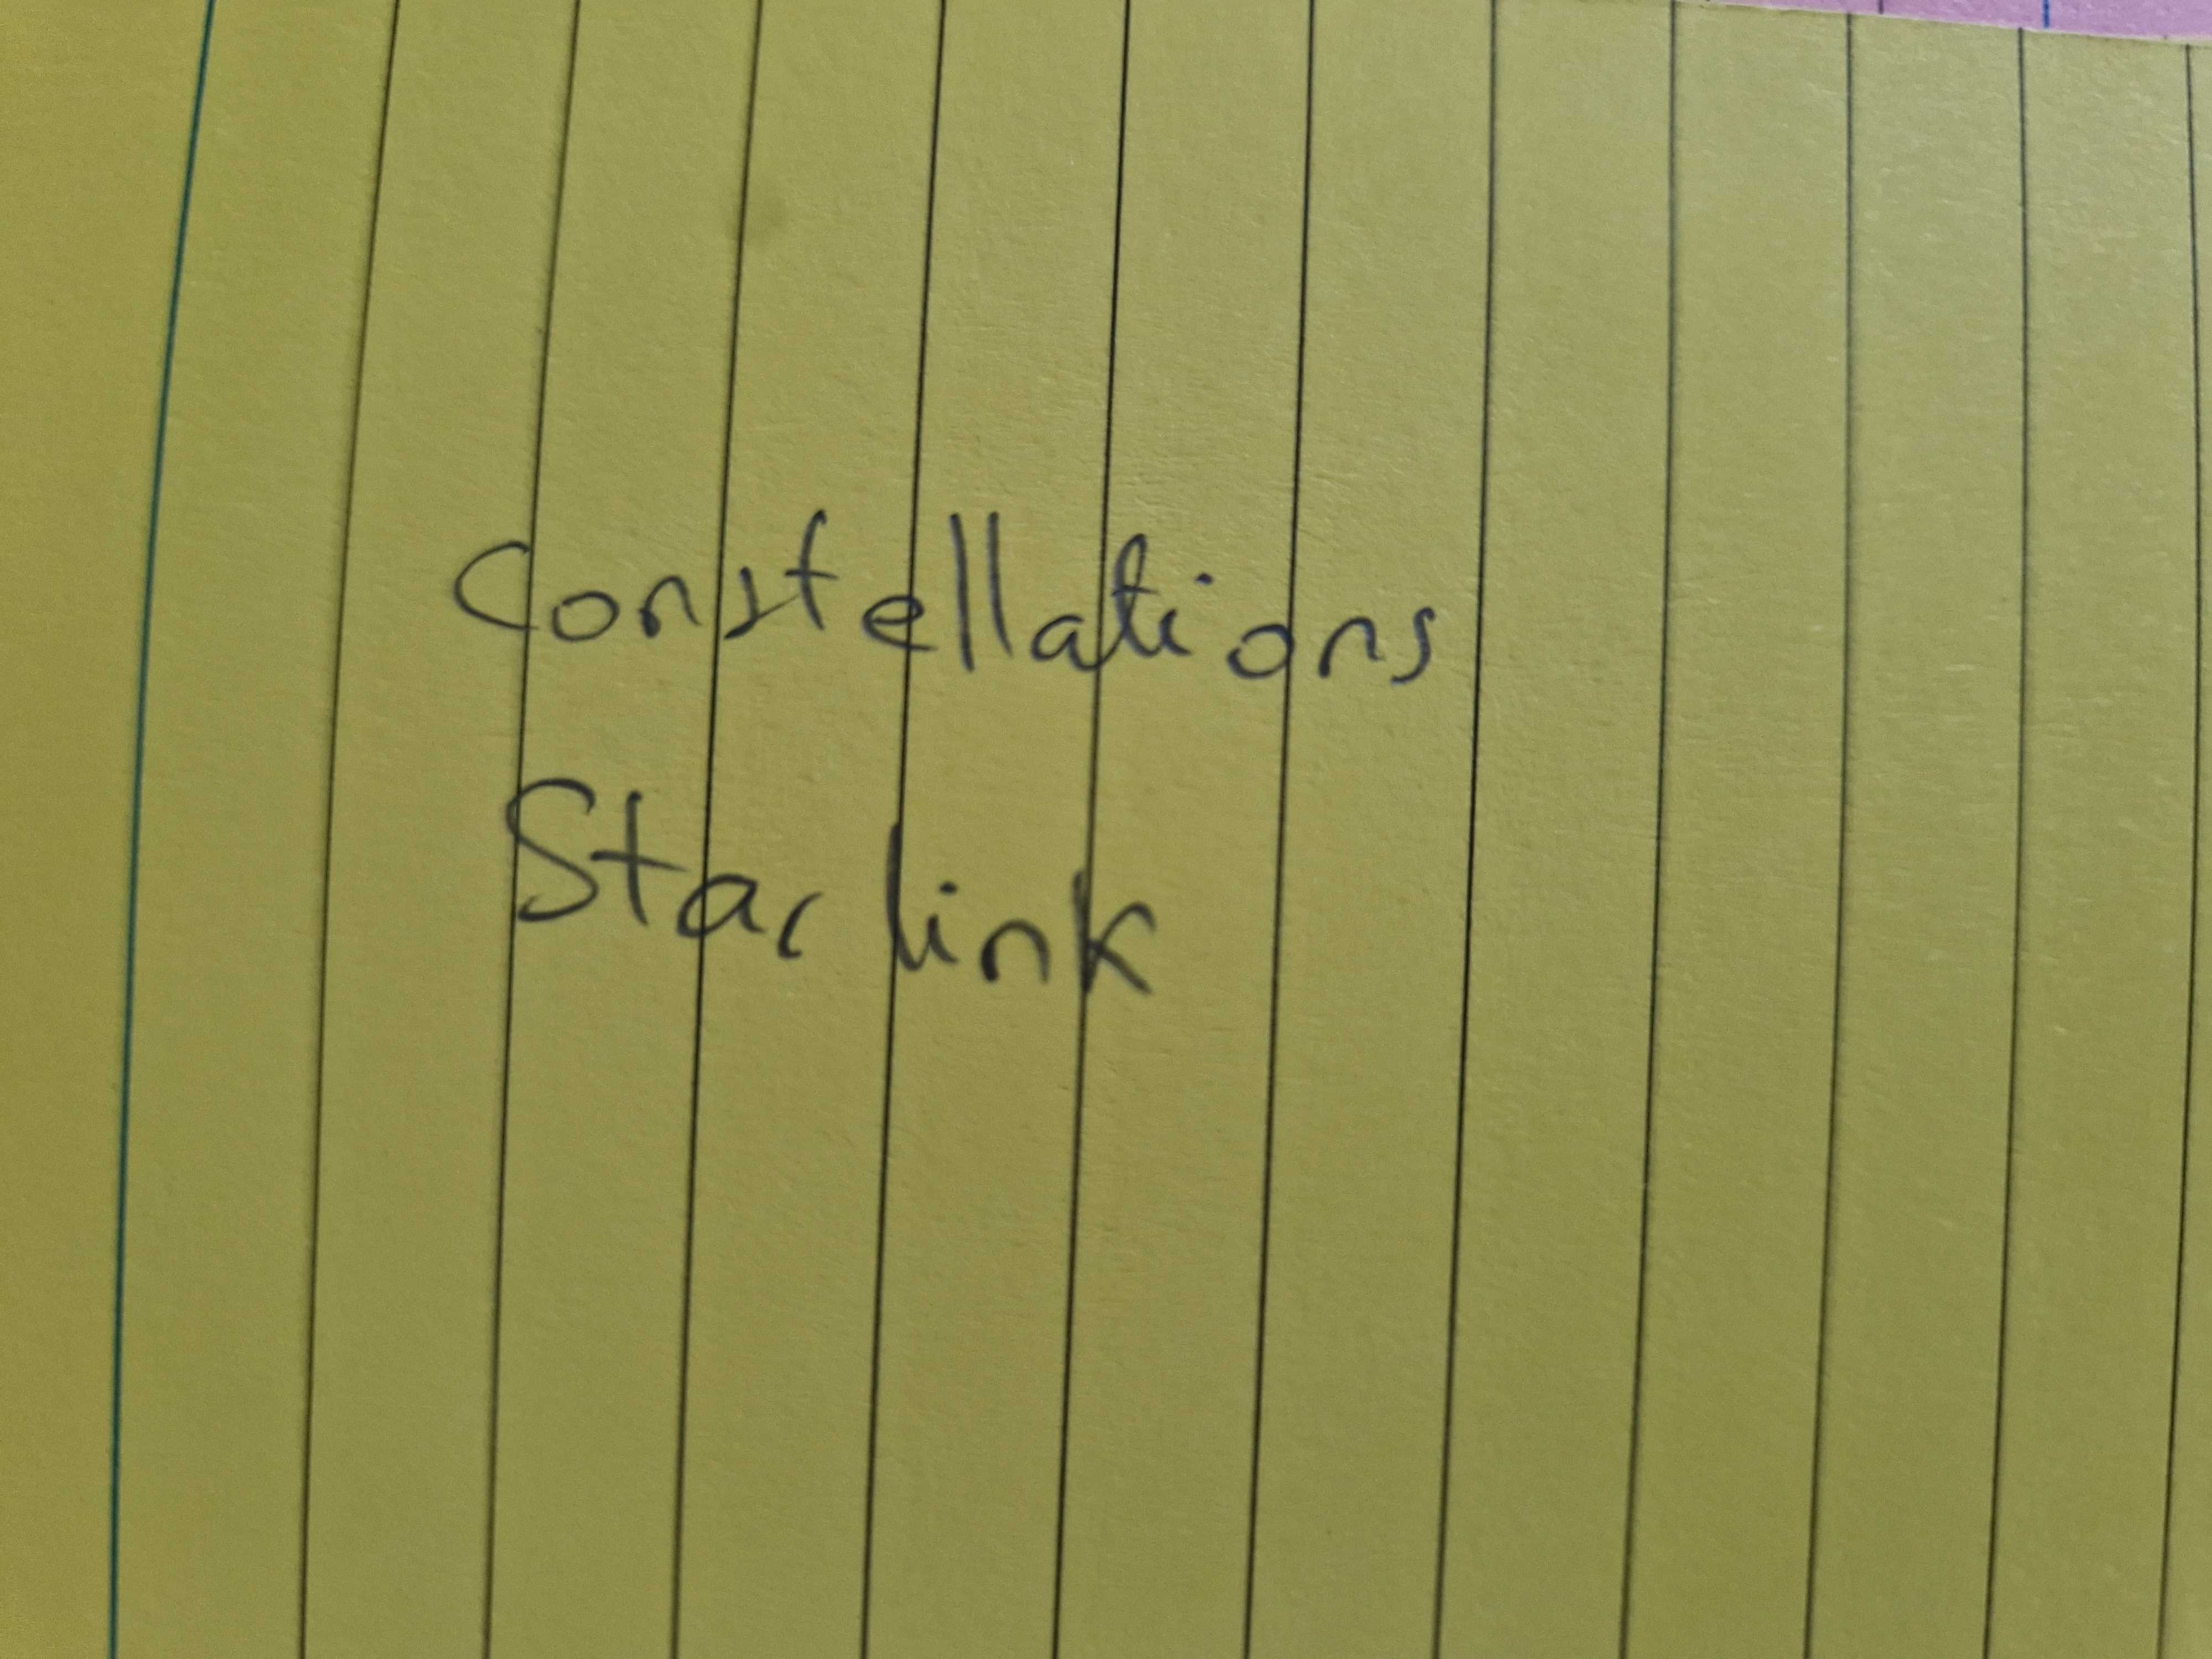 Constellations
Starlink